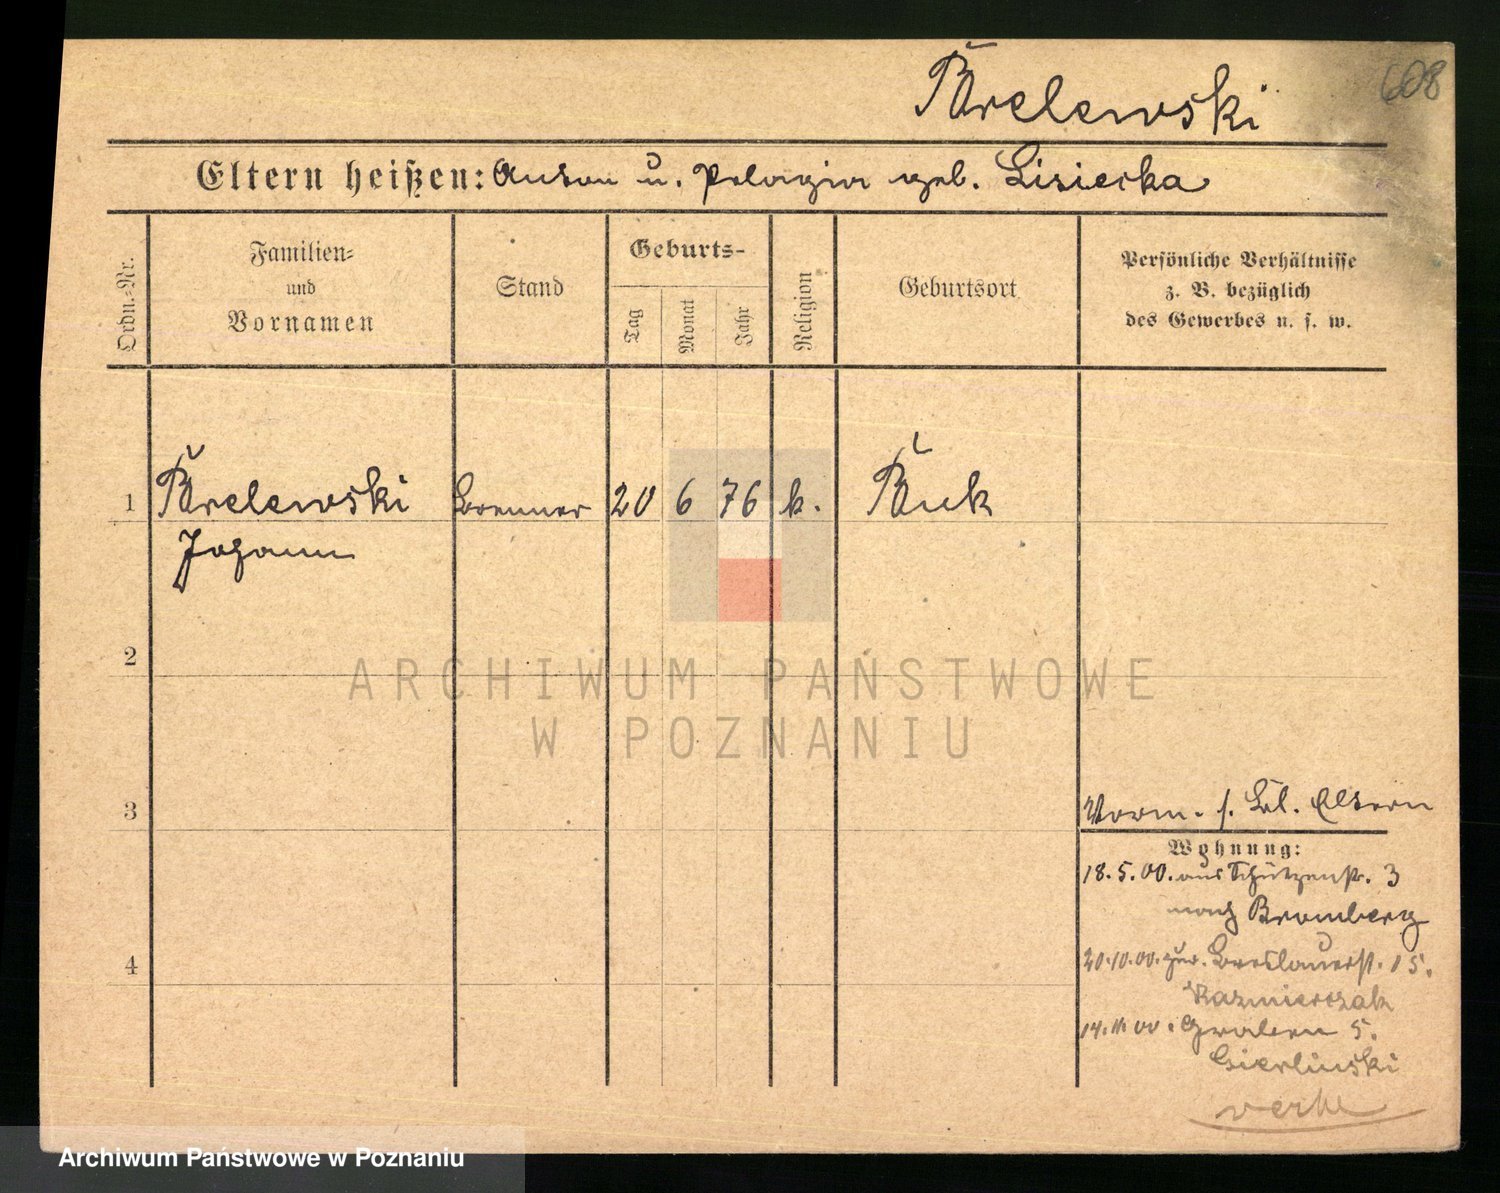 608
Brelewski
Eltern heißen: Anton u. Pelagia geb. Lisiecka
Ordn.-Nr.
Familien- und Vornamen
Stand
Geburts-
Tag
Monat
Jahr
Religion
Geburtsort
Persönliche Verhältnisse
z. B. bezüglich
des Gewerbes u. s. w.
1 Brelewski Brenner 20 6 76 k. Buk
Johann
2
3
4
Vorm. s. Bl. Eltern
Wohnung:
18.5.00. aus Schützenstr. 3
nach Bromberg
20.10.00. zur. Breslauerst. 15.
Kazmierczak
14.11.00. Graben 5.
Gierlinski
ARCHIWUM PAŃSTWOWE
W POZNANIU
Archiwum Państwowe w Poznaniu